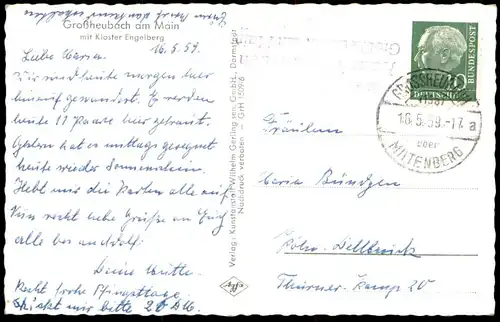 Großheubach am Main
mit Kloster Engelberg
16.5.59.
Liebe
Sind heute morgen hier
hinauf gewandert. Es werden
heute 11 Paare hier getraut.
Gestern hat es mittags geregnet
heute wieder Sonnenschein.
Hebt mir die Karten alle auf.
Nun recht liebe Grüße an Euch
alle
Deine Mutti
Recht frohe Pfingsttage.
Schickt mir bitte 20 DM.
Verlag: Kunstanstalt Wilhelm Gerling von GmbH., Darmstadt
Nachdruck verboten — GrH 1509/6
DEUTSCHE
BUNDESPOST
10
GROSSHEUBACH
16.5.59.-17
a
über
MILTENBERG
Fräulein
Maria Bündgen
Köln-Dellbrück
Thurner-Kamp 20